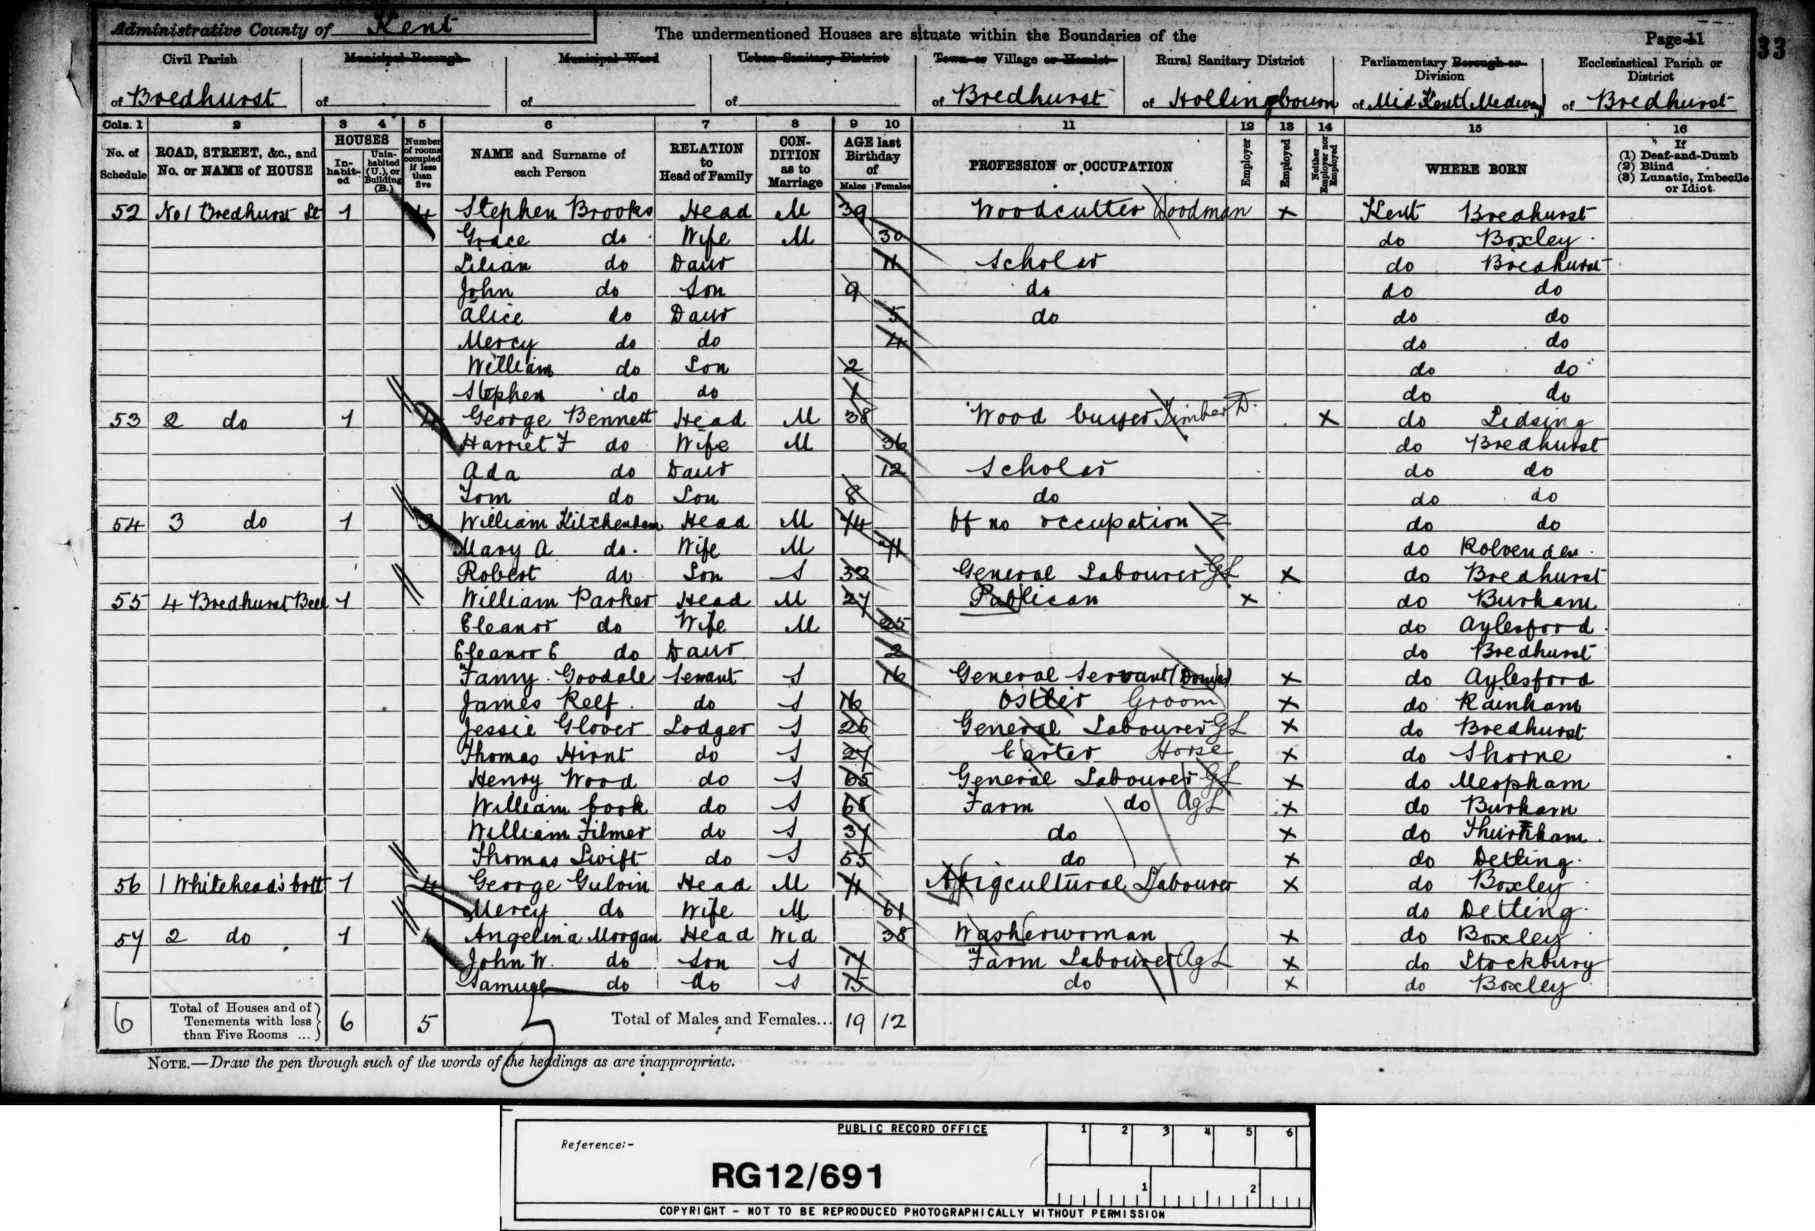 Administrative County of Kent
The undermentioned Houses are situate within the Boundaries of the
Page 11
33
Civil Parish Municipal Borough Municipal Ward Urban Sanitary District Town or Village or Hamlet Rural Sanitary District Parliamentary Borough or Division Ecclesiastical Parish or District
of Bredhurst of of of of Bredhurst of Hollingbourn of Mid Kent (Medway) of Bredhurst
Cols. 1 2 3 4 5 6 7 8 9 10 11 12 13 14 15 16
No. of Schedule ROAD, STREET, &c., and No. or NAME of HOUSE HOUSES Inhabited Uninhabited (U.), or Building (B.) Number of rooms occupied if less than five NAME and Surname of each Person RELATION to Head of Family CONDITION as to Marriage AGE last Birthday of Males Females PROFESSION or OCCUPATION Employer Employed Neither Employer nor Employed WHERE BORN If (1) Deaf-and-Dumb (2) Blind (3) Lunatic, Imbecile or Idiot
52 No 1 Bredhurst St 1 4 Stephen Brooks Head M 39 Woodcutter Woodman x Kent Bredhurst
Grace do Wife M 30 do Boxley
Lilian do Daur 11 Scholar do Bredhurst
John do Son 9 do do do
Alice do Daur 5 do do do
Mercy do do 4 do do
William do Son 2 do do
Stephen do do 1 do do
53 2 do 1 4 George Bennett Head M 38 Wood buyer Timber D. x do Lidsing
Harriet F do Wife M 36 do Bredhurst
Ada do Daur 12 Scholar do do
Tom do Son 8 do do do
54 3 do 1 3 William Kitchenham Head M 74 Of no occupation do do
Mary A do. Wife M 71 do Rolvenden
Robert do Son S 32 General Labourer GL x do Bredhurst
55 4 Bredhurst Bell 1 William Parker Head M 27 Publican x do Burham
Eleanor do Wife M 25 do Aylesford
Eleanor E do Daur 2 do Bredhurst
Fanny Goodale Servant S 16 General Servant (Domes) x do Aylesford
James Relf do S 16 Ostler Groom x do Rainham
Jessie Glover Lodger S 26 General Labourer GL x do Bredhurst
Thomas Hirnt do S 27 Carter Horse x do Shorne
Henry Wood do S 65 General Labourer GL x do Meopham
William Cook do S 68 Farm do Ag L x do Burham
William Filmer do S 37 do x do Thurnham
Thomas Swift do S 55 do x do Detling
56 1 Whitehead's Cott 1 4 George Gulvin Head M 71 Agricultural Labourer x do Boxley
Mercy do Wife M 61 do Detling
57 2 do 1 Angelina Morgan Head Wid 38 Washerwoman x do Boxley
John W. do Son S 17 Farm Labourer Ag L x do Stockbury
Samuel do do S 15 do x do Boxley
6 Total of Houses and of Tenements with less than Five Rooms ... 6 5 Total of Males and Females... 19 12
5
NOTE.—Draw the pen through such of the words of the headings as are inappropriate.
PUBLIC RECORD OFFICE
1 2 3 4 5 6
Reference:-
RG12/691
1 2
COPYRIGHT - NOT TO BE REPRODUCED PHOTOGRAPHICALLY WITHOUT PERMISSION